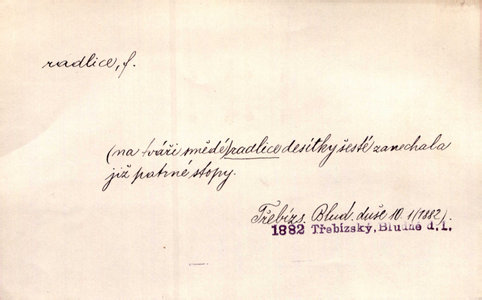 radlice, f.
(na tváři snědé) radlice desítky šesté zanechala
již patrné stopy.
Třebízs. Blud. duše 10. 1 (1882).
1882 Třebízský, Bludné d. 1.